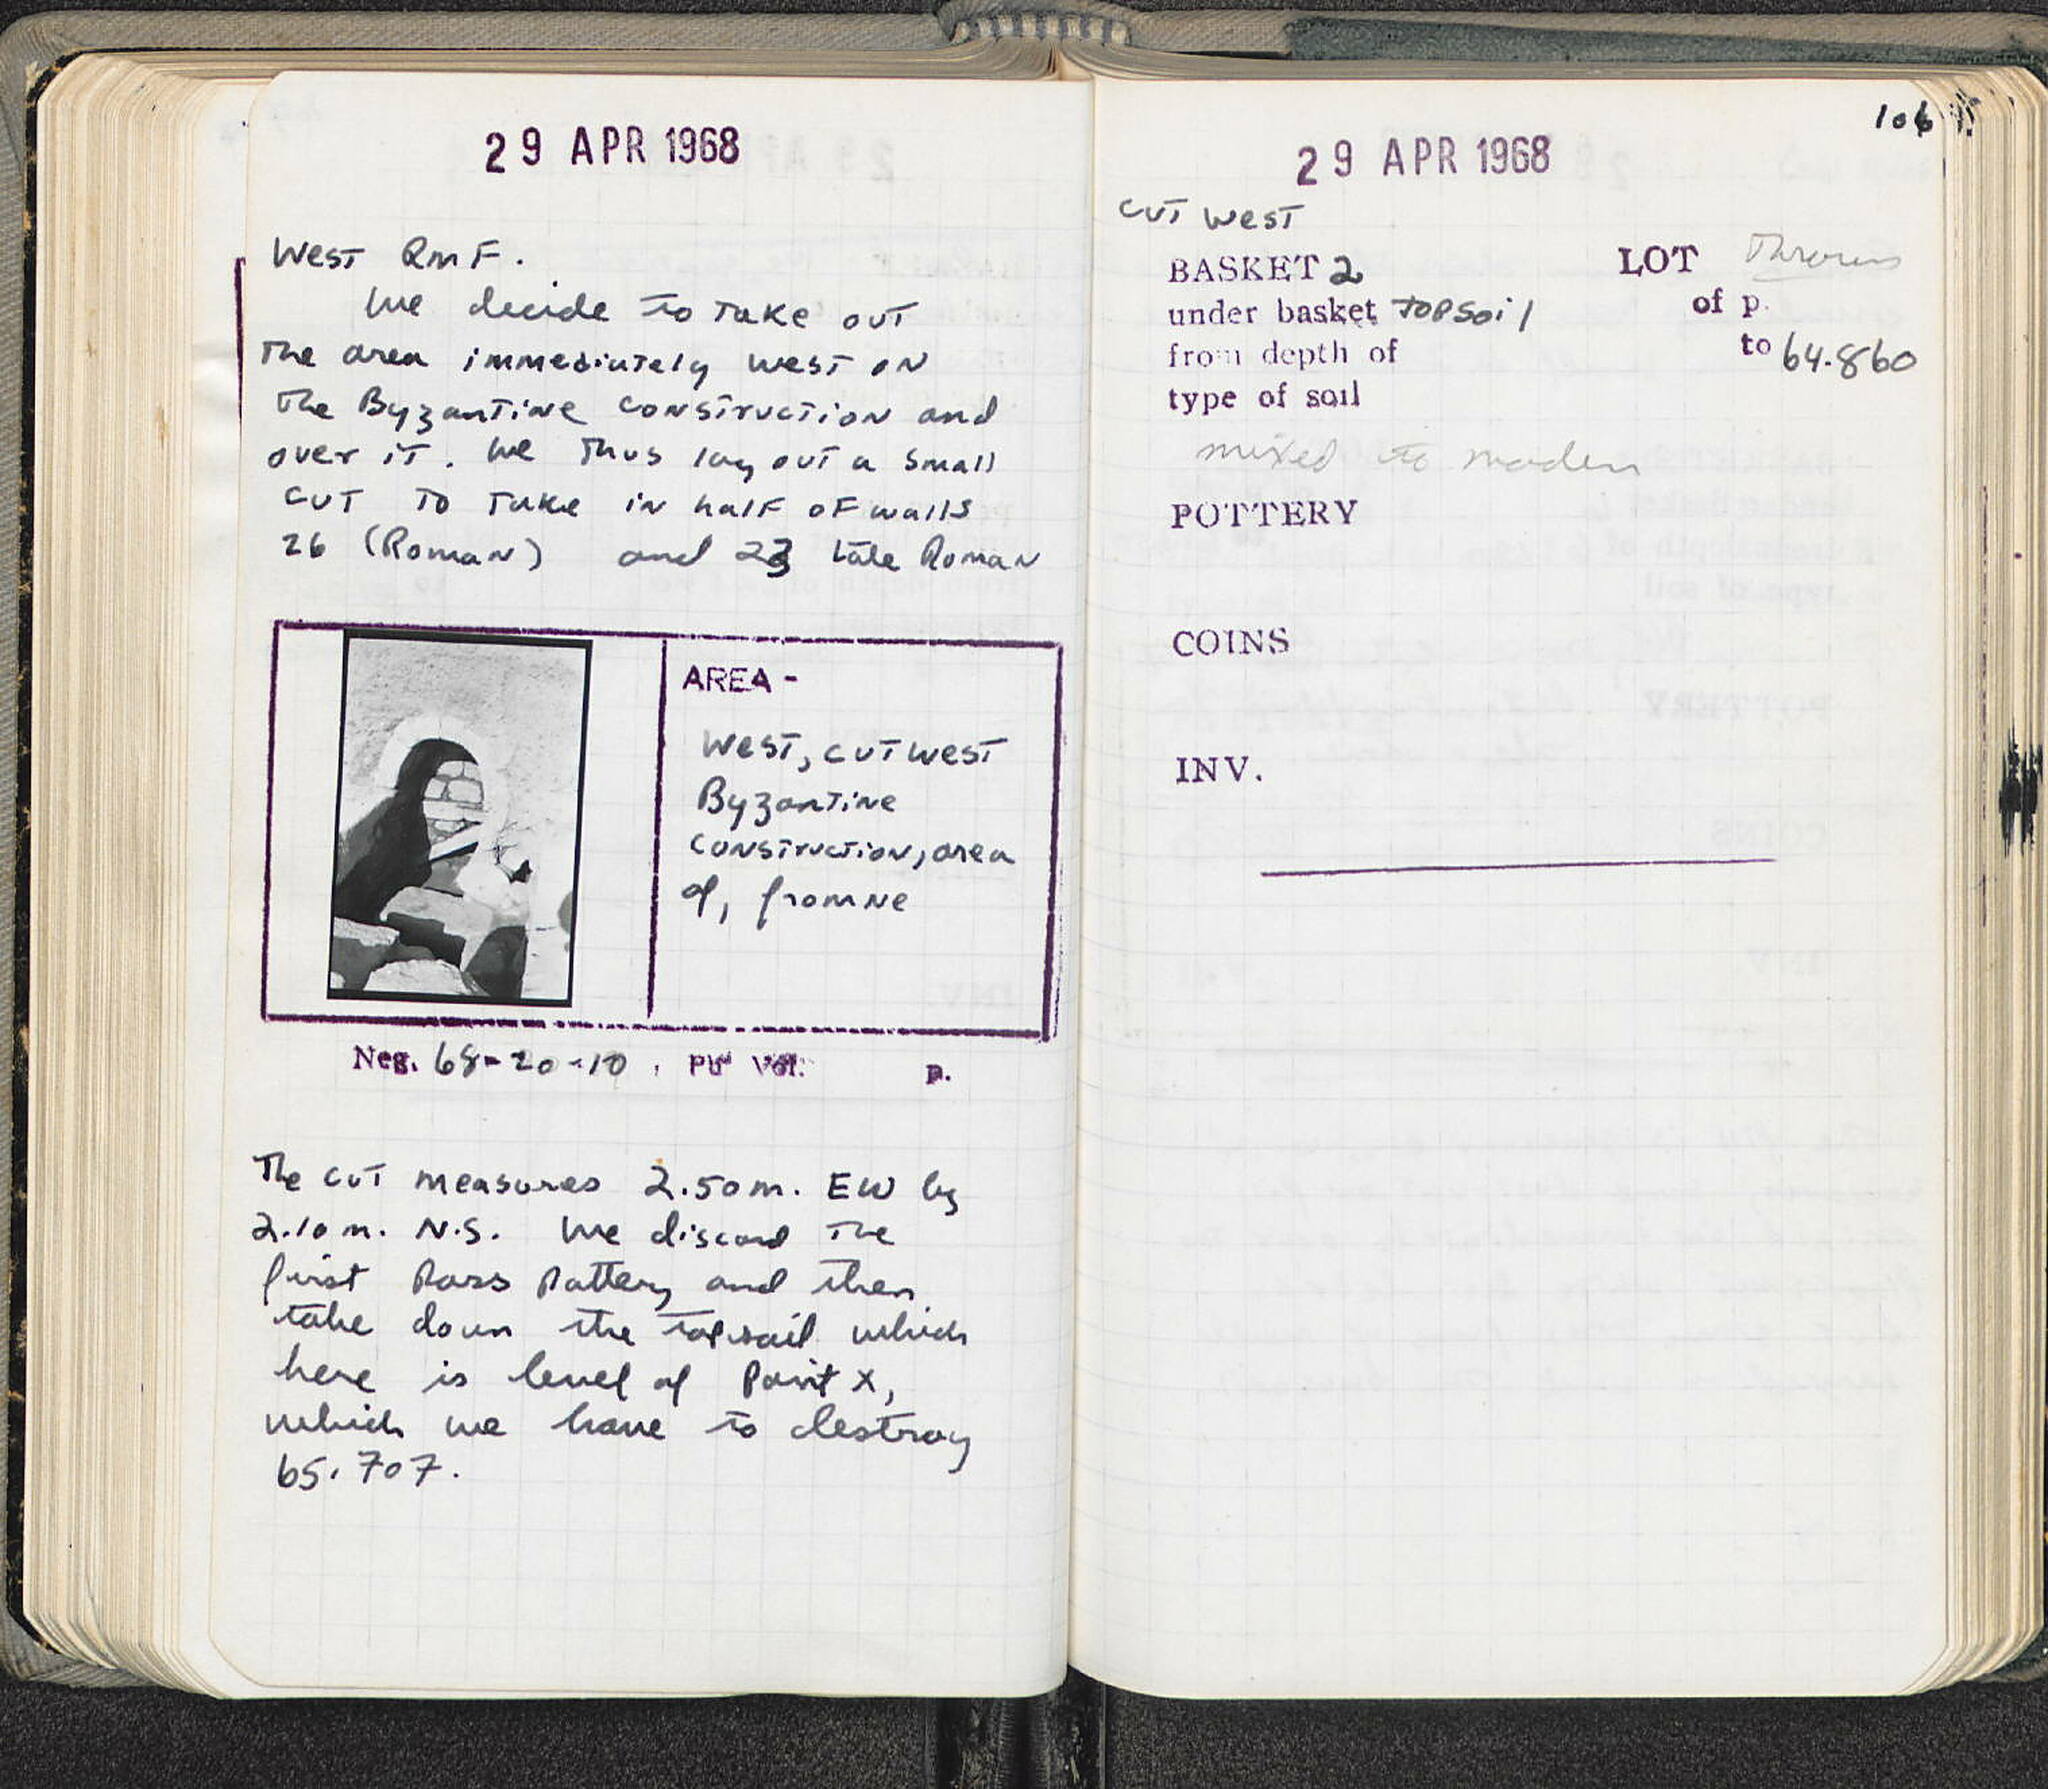 29 APR 1968
West Rm F.
We decide to take out
the area immediately west on
the Byzantine construction and
over it. We thus lay out a small
cut to take in half of walls
26 (Roman) and 23 late Roman
AREA -
West, cut west
Byzantine
construction, area
of, from NE
Neg. 68-20-10, Ph Vol. p.
The cut measures 2.50m. EW by
2.10 m. N.S. We discard the
first pass pottery and then
take down the topsoil which
here is level of Point X,
which we have to destroy
65.707.
106
29 APR 1968
cut west
BASKET 2 LOT Thrown
under basket Topsoil of p.
from depth of to 64.860
type of soil
mixed to modern
POTTERY
COINS
INV.